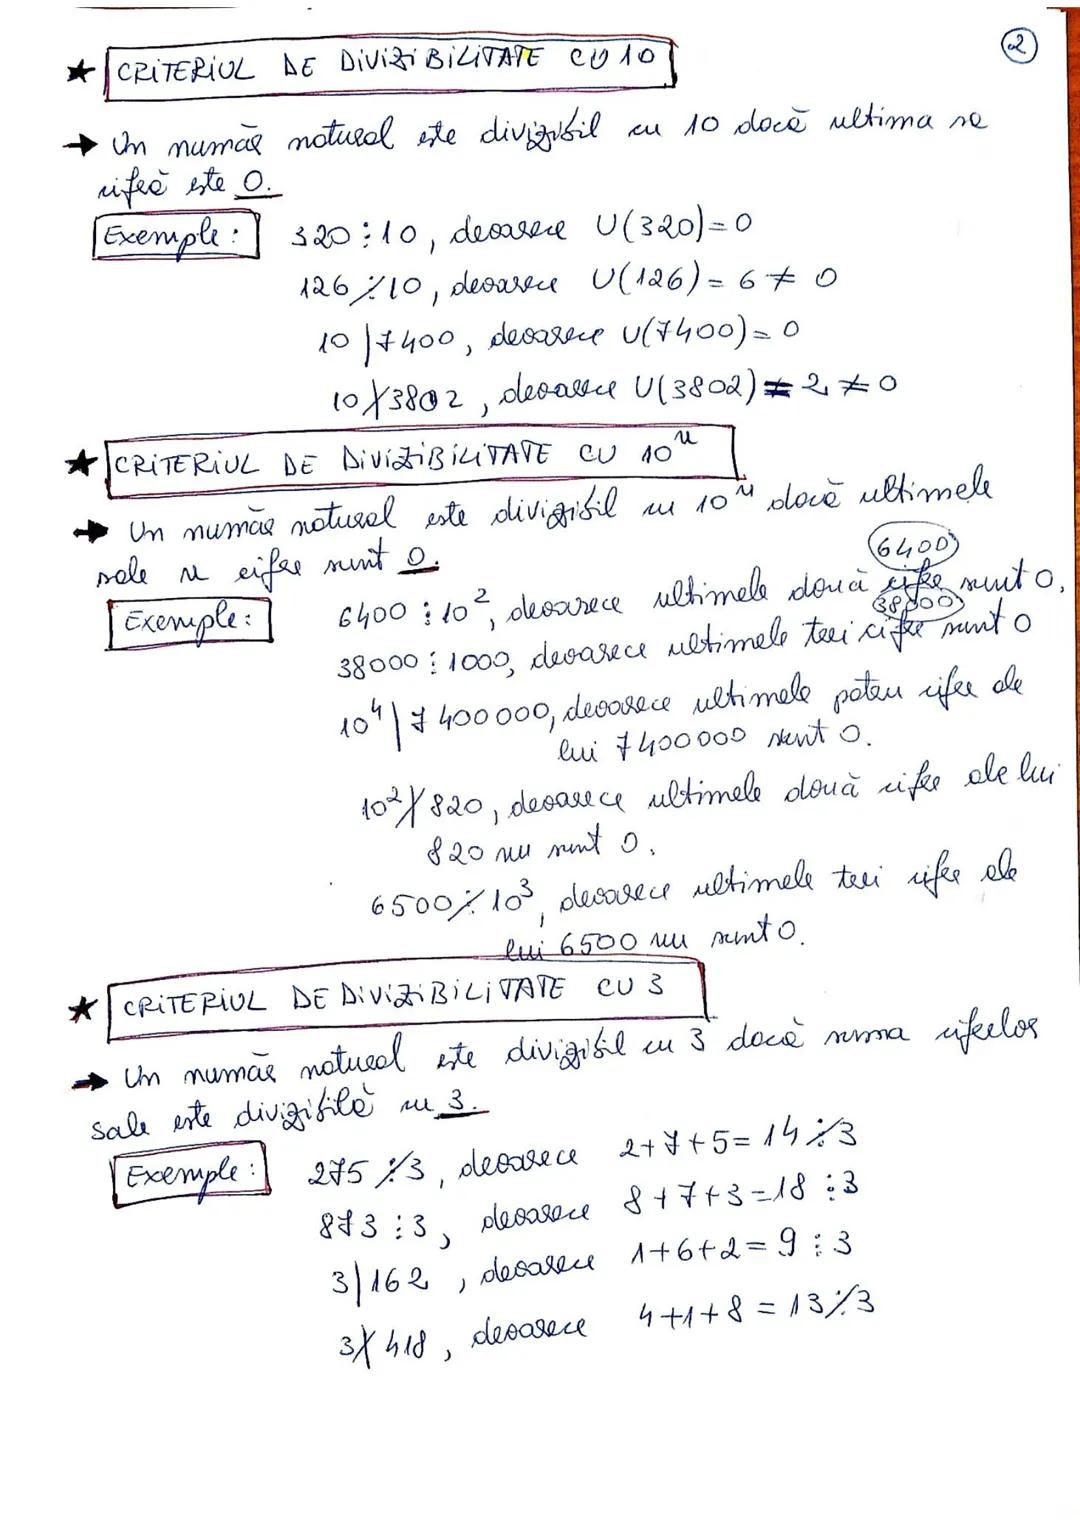 2
★ CRITERIUL DE DIVIZIBILITATE CU 10
→ Un număr natural este divizibil cu 10 dacă ultima sa
cifră este 0.
Exemple: 320⋮10, deoarece U(320)=0
126⋮̸10, deoarece U(126)=6≠0
10|7400, deoarece U(7400)=0
10∤3802, deoarece U(3802)=2≠0
★ CRITERIUL DE DIVIZIBILITATE CU 10ⁿ
→ Un număr natural este divizibil cu 10ⁿ dacă ultimele
sale n cifre sunt 0.
6400
Exemple: 6400⋮10², deoarece ultimele două cifre sunt 0.
38000
38000⋮1000, deoarece ultimele trei cifre sunt 0
10⁴|7400000, deoarece ultimele patru cifre ale
lui 7400000 sunt 0.
10²∤820, deoarece ultimele două cifre ale lui
820 nu sunt 0.
6500⋮̸10³, deoarece ultimele trei cifre ale
lui 6500 nu sunt 0.
★ CRITERIUL DE DIVIZIBILITATE CU 3
→ Un număr natural este divizibil cu 3 dacă suma cifrelor
sale este divizibilă cu 3.
Exemple: 275⋮̸3, deoarece 2+7+5=14⋮̸3
873⋮3, deoarece 8+7+3=18⋮3
3|162, deoarece 1+6+2=9⋮3
3∤418, deoarece 4+1+8=13⋮̸3